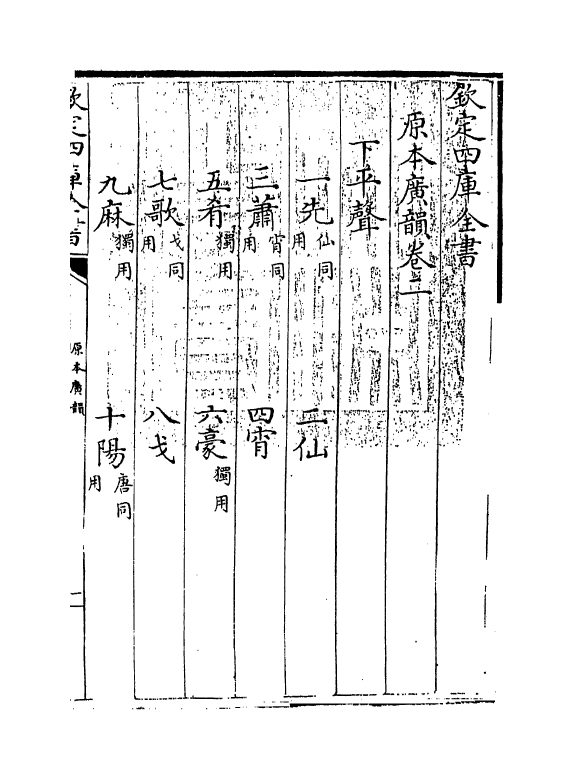 欽定四庫全書
原本廣韻卷二
下平聲
一先仙同用 二仙
三蕭宵同用 四宵
五肴獨用 六豪獨用
七歌戈同用 八戈
九麻獨用 十陽唐同用
欽定四庫全書
原本廣韻
一